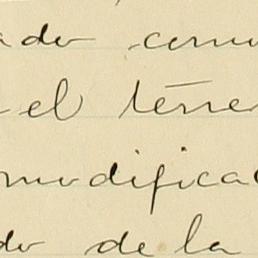 ado comu
el terre
modifica
do de la